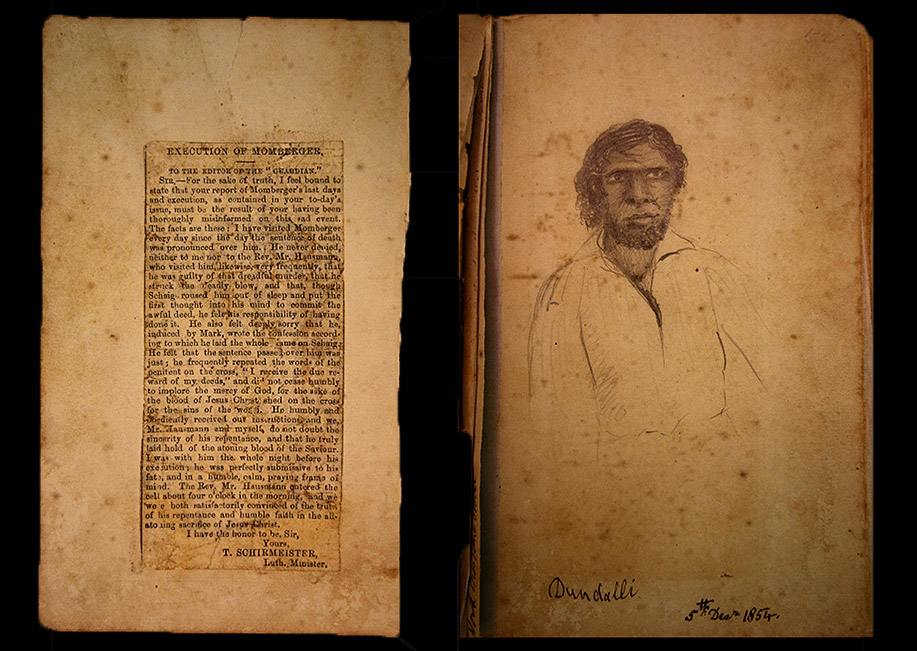 EXECUTION OF MOMBERGER.
TO THE EDITOR OF THE "GUARDIAN."
SIR,—For the sake of truth, I feel bound to
state that your report of Momberger's last days
and execution, as contained in your to-day's
issue, must be the result of your having been
thoroughly misinformed on this sad event.
The facts are these: I have visited Momberger
every day since the day the sentence of death
was pronounced over him. He never denied,
neither to me nor to the Rev. Mr. Hausmann,
who visited him, likewise, very frequently, that
he was guilty of that dreadful murder, that he
struck the deadly blow, and that, though
Schaig roused him out of sleep and put the
first thought into his mind to commit the
awful deed, he felt his responsibility of having
done it. He also felt deeply sorry that he,
induced by Mark, wrote the confession accord-
ing to which he laid the whole ame on Schaig.
He felt that the sentence passed over him was
just; he frequently repeated the words of the
penitent on the cross, "I receive the due re-
ward of my deeds," and did not cease humbly
to implore the mercy of God, for the sake of
the blood of Jesus Christ shed on the cross
for the sins of the world. He humbly and
obediently received our instructions, and we,
Mr. Hausmann and myself, do not doubt the
sincerity of his repentance, and that he truly
laid hold of the atoning blood of the Saviour.
I was with him the whole night before his
execution; he was perfectly submissive to his
fate, and in a humble, calm, praying frame of
mind. The Rev. Mr. Hausmann entered the
cell about four o'clock in the morning, and we
we e both satisfactorily convinced of the truth
of his repentance and humble faith in the all-
ato ing sacrifice of Jesus Christ.
I have the honor to be, Sir,
Yours,
T. SCHIRMEISTER,
Luth. Minister.
Dundalli
5th Decr 1854.